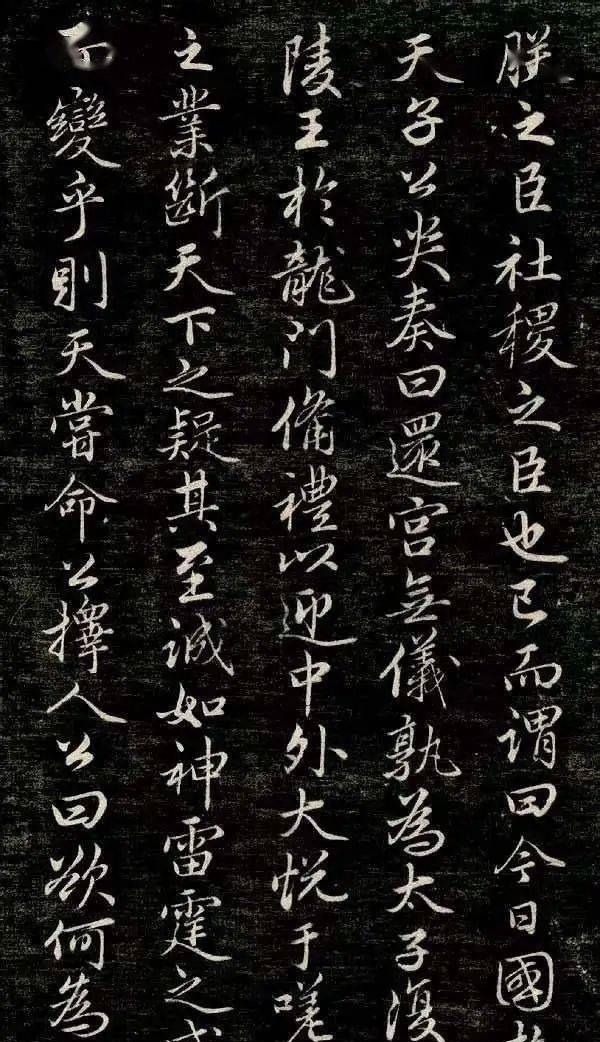 朕之臣社稷之臣也已而謂曰今日國
天子公哭奏曰還宮無儀孰為太子復
陵王於龍門備禮以迎中外大悅于嗟
之業斷天下之疑其至誠如神雷霆之
變乎則天嘗命公擇人公曰欲何為